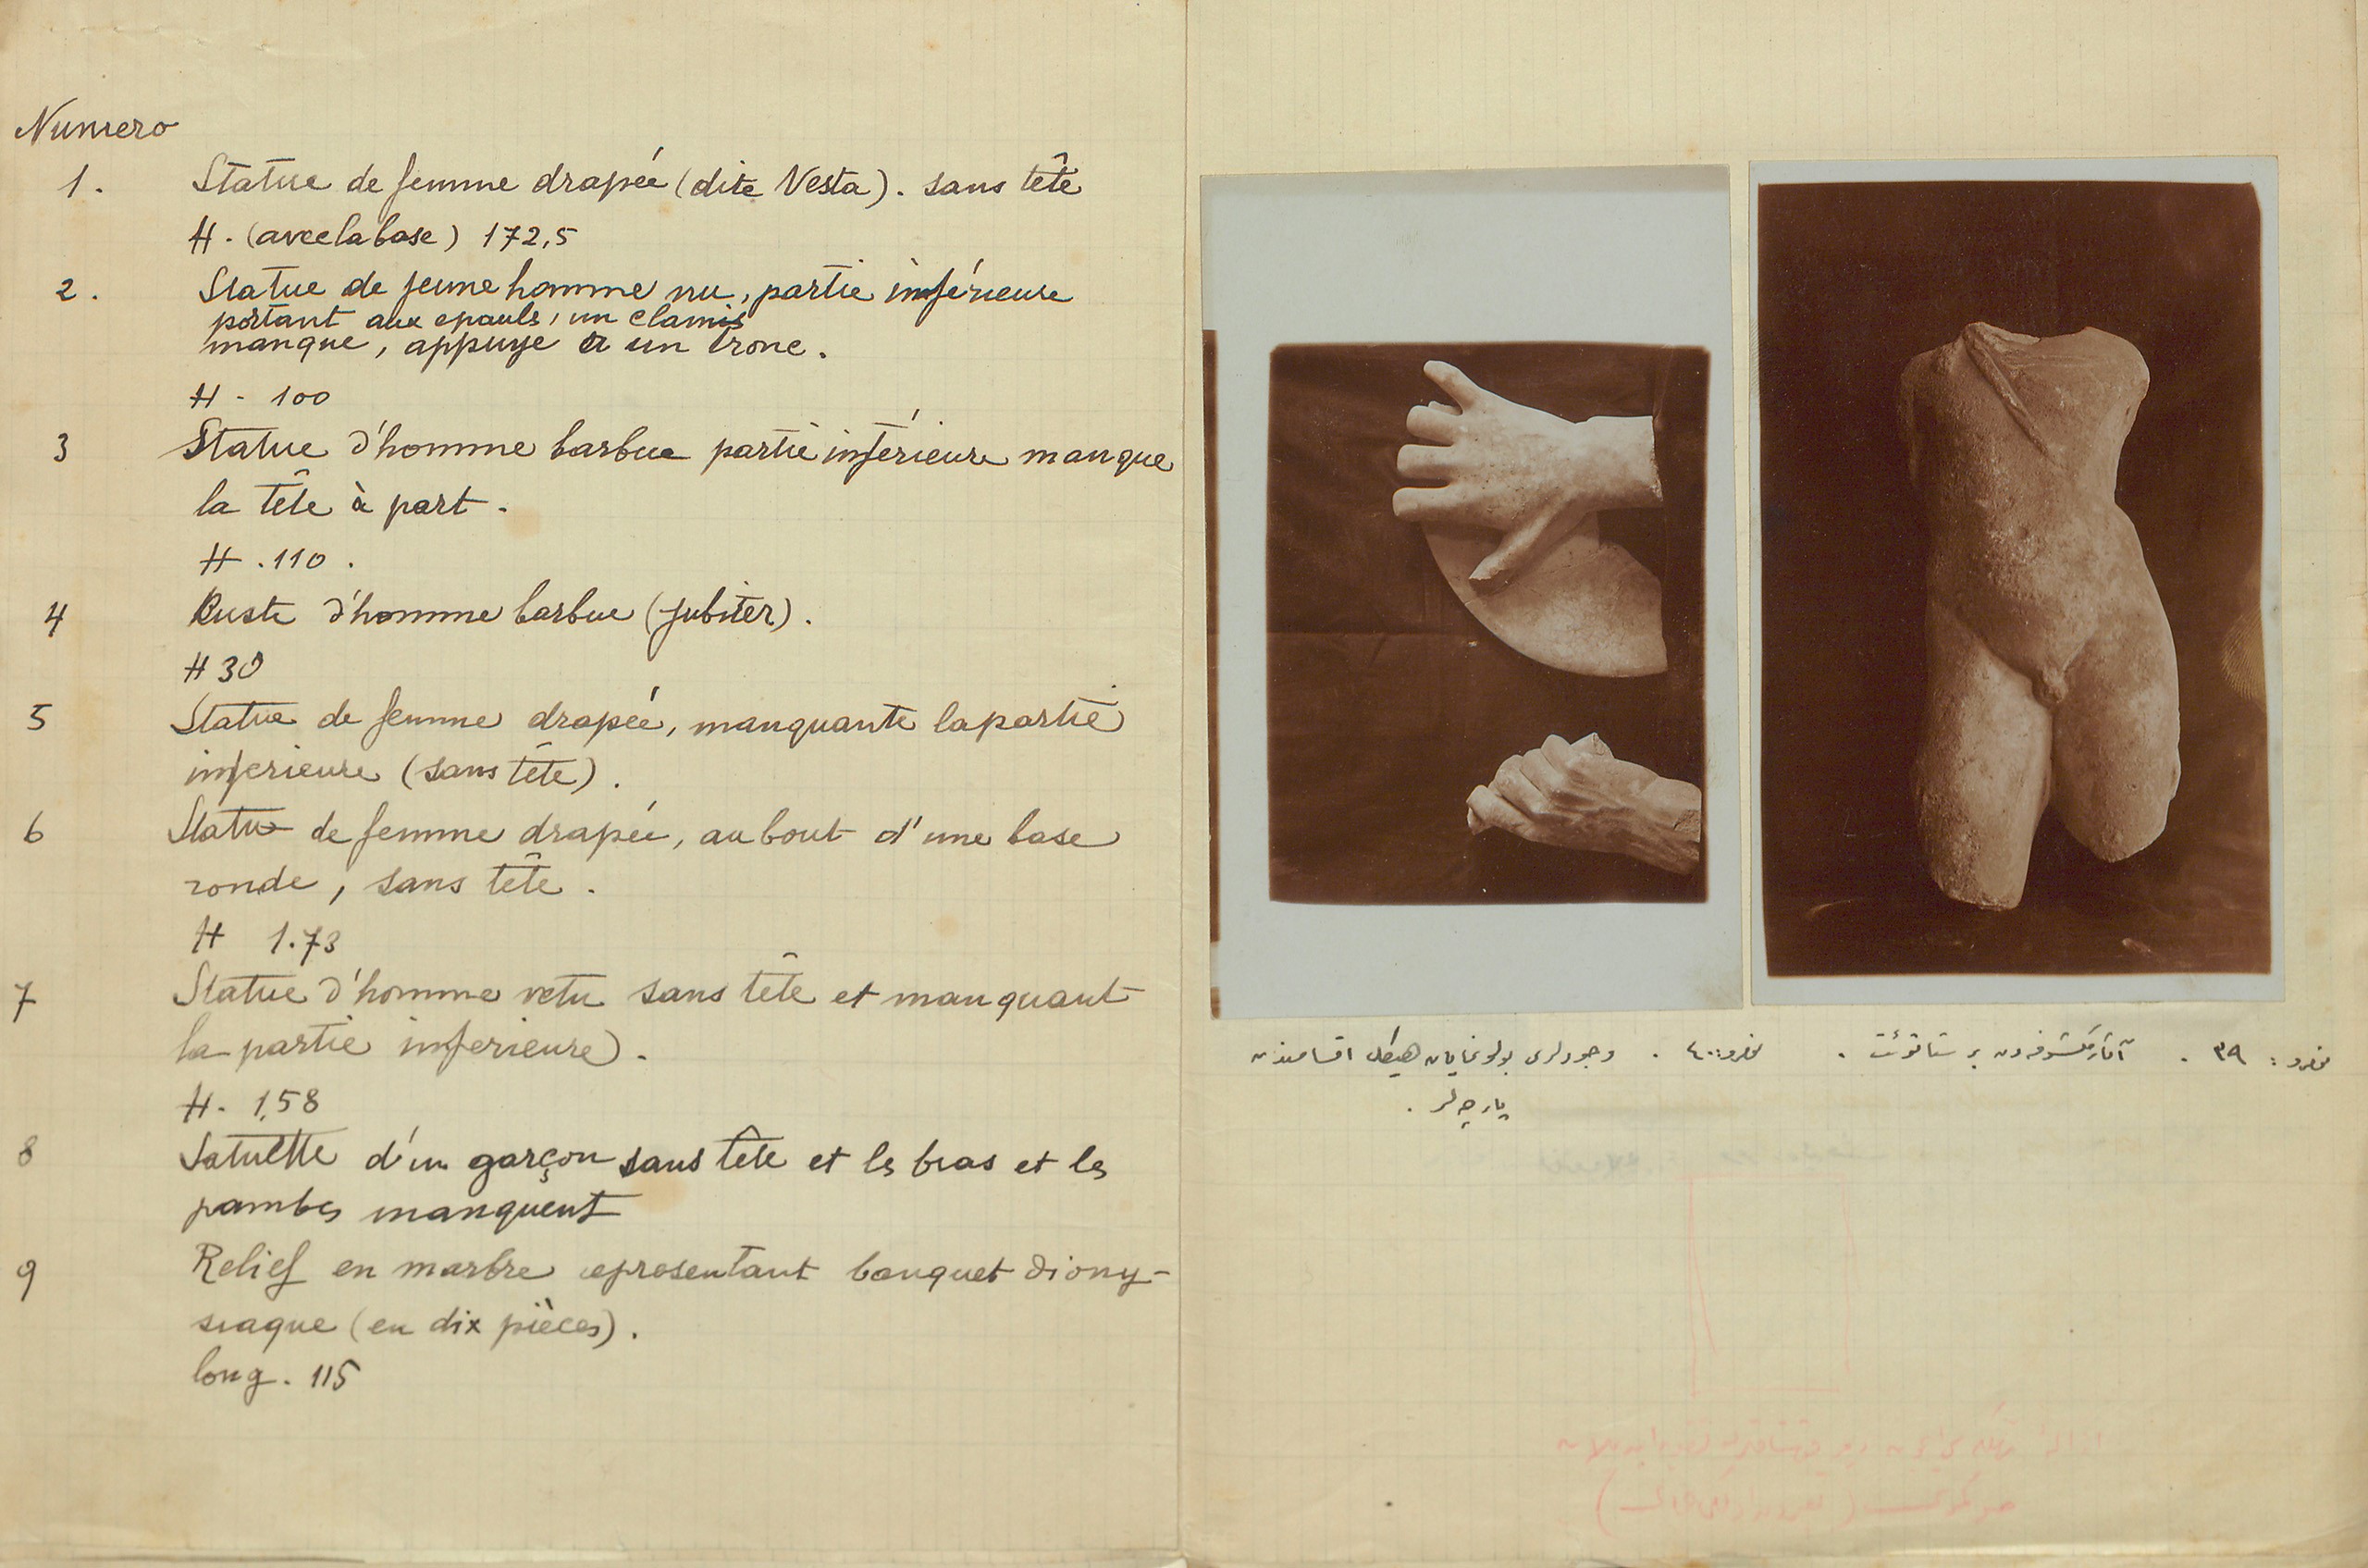 Numero
1. Statue de femme drapée (dite Vesta). sans tête
H. (avec la base) 172,5
2. Statue de jeune homme nu, partie inférieure
portant aux epauls, un clamis
manque, appuye a un trone.
H - 100
3 Statue d'homme barbue partie inférieure manque
la tête à part.
H. 110.
4 Buste d'homme barbue (Jubiter).
H 30
5 Statue de femme drapée, manquante la partie
inferieure (sans tête).
6 Statue de femme drapée, au bout d'une base
ronde, sans tête.
H 1.73
7 Statue d'homme vetu sans tête et manquant
la partie inferieure).
H. 1,58
8 Satuette d'un garçon sans tête et les bras et les
jambes manquent
9 Relief en marbre representant banquet diony-
siaque (en dix pièces).
long. 115
نومرو: ٣٩ . آثار مكشوفه‌دن بر ستاتوئت .
نومرو: ٤٠ . وجودلرى بولونمايان هيكل اقسامندن
پارچه‌لر .